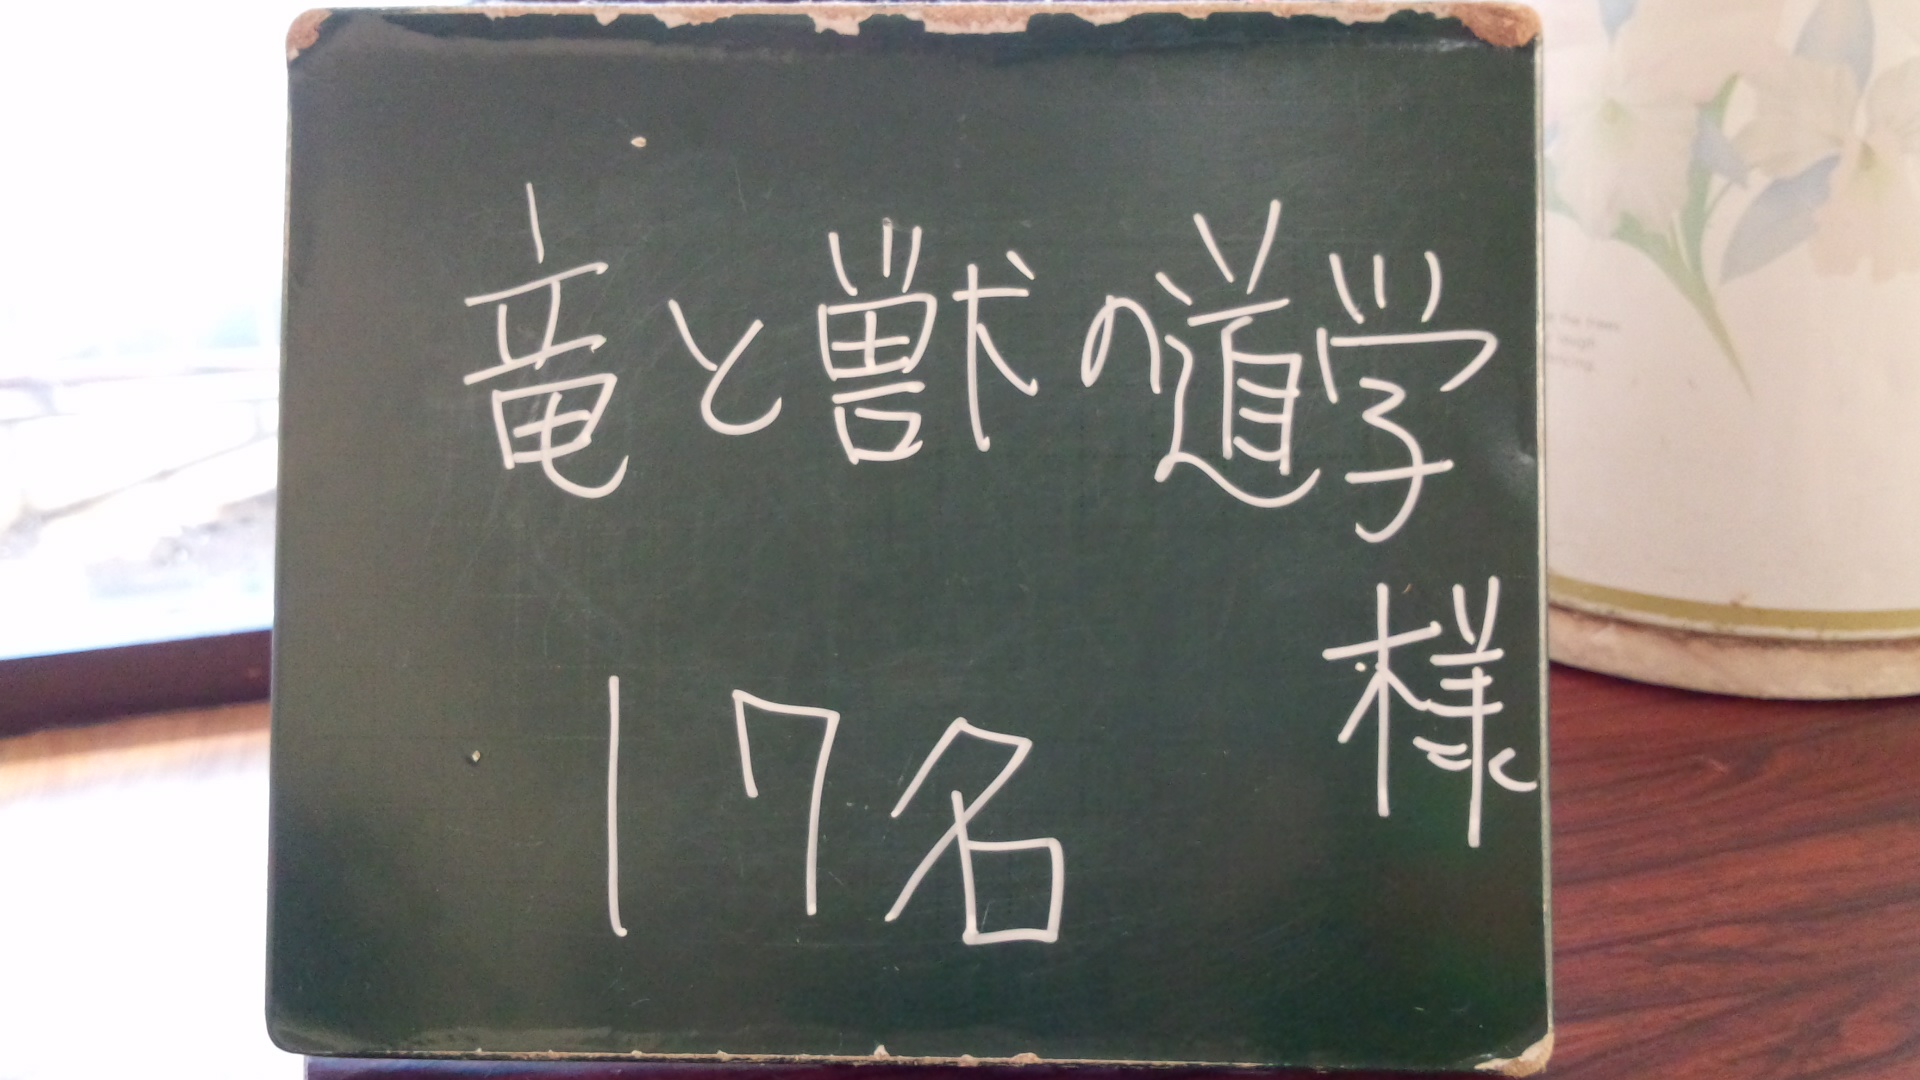 竜と獣の道学
様
17名